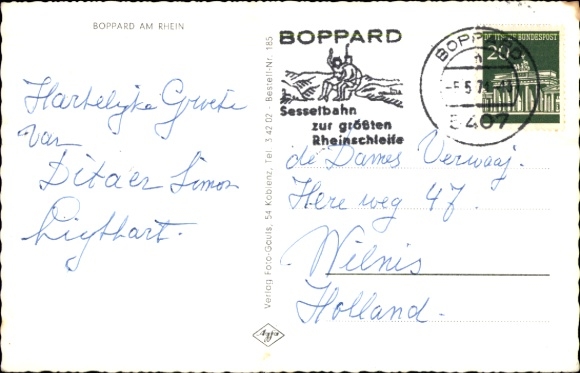 BOPPARD AM RHEIN
Hartelijke Groete
van
Dita en Simon
Ligthart.
Verlag Foto-Gauls, 54 Koblenz, Tel. 3 42 02 - Bestell-Nr. 185
BOPPARD
Sesselbahn
zur größten
Rheinschleife
BOPPARD
5407
DEUTSCHE BUNDESPOST
20
de Dames Verwaaj.
Here weg 47.
Wilnis
Holland.